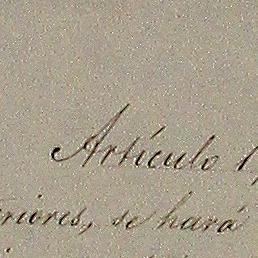 Artículo 1,
riores, se hará